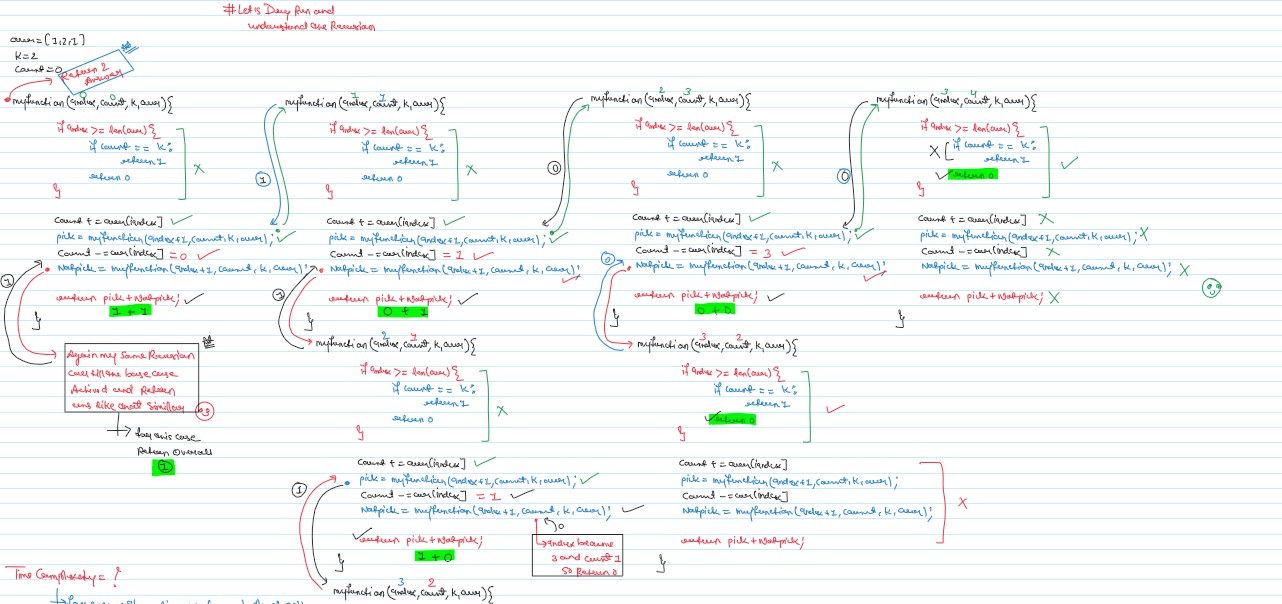 # Let's Dry Run and
understand the Recursion
arr = [1,2,1]
K=2
Count=0
Return 2
Answer
0 0
myfunction(index,count,k,arr){
if index >= len(arr){
if count == k:
return 1
return 0
}
X
Count += arr[index]
pick = myfunction(index+1,count,k,arr);
Count -= arr[index] = 0
Notpick = myfunction(index+1,count,k,arr);
return pick+Notpick;
1 + 1
}
1
Again my Same Recursion
Call till the base case
Actived and Return
ans like that Similar
for this case
Return Overall
1
1 1
myfunction(index,count,k,arr){
if index >= len(arr){
if count == k:
return 1
return 0
}
X
1
Count += arr[index]
pick = myfunction(index+1,count,k,arr);
Count -= arr[index] = 1
Notpick = myfunction(index+1,count,k,arr);
return pick+Notpick;
0 + 1
}
1
2 3
myfunction(index,count,k,arr){
if index >= len(arr){
if count == k:
return 1
return 0
}
X
0
Count += arr[index]
pick = myfunction(index+1,count,k,arr);
Count -= arr[index] = 3
Notpick = myfunction(index+1,count,k,arr);
return pick+Notpick;
0 + 0
}
0
3 4
myfunction(index,count,k,arr){
if index >= len(arr){
X [ if count == k:
return 1
return 0
}
0
Count += arr[index] X
pick = myfunction(index+1,count,k,arr); X
Count -= arr[index] X
Notpick = myfunction(index+1,count,k,arr); X
return pick+Notpick; X
}
2 1
myfunction(index,count,k,arr){
if index >= len(arr){
if count == k:
return 1
return 0
}
X
Count += arr[index]
pick = myfunction(index+1,count,k,arr);
Count -= arr[index] = 1
Notpick = myfunction(index+1,count,k,arr);
return pick+Notpick;
1 + 0
}
1
0
index became
3 and count 1
So Return 0
3 2
myfunction(index,count,k,arr){
3 2
myfunction(index,count,k,arr){
if index >= len(arr){
if count == k:
return 1
return 0
}
Count += arr[index]
pick = myfunction(index+1,count,k,arr);
Count -= arr[index]
Notpick = myfunction(index+1,count,k,arr);
return pick+Notpick;
}
X
Time Complexity = ?